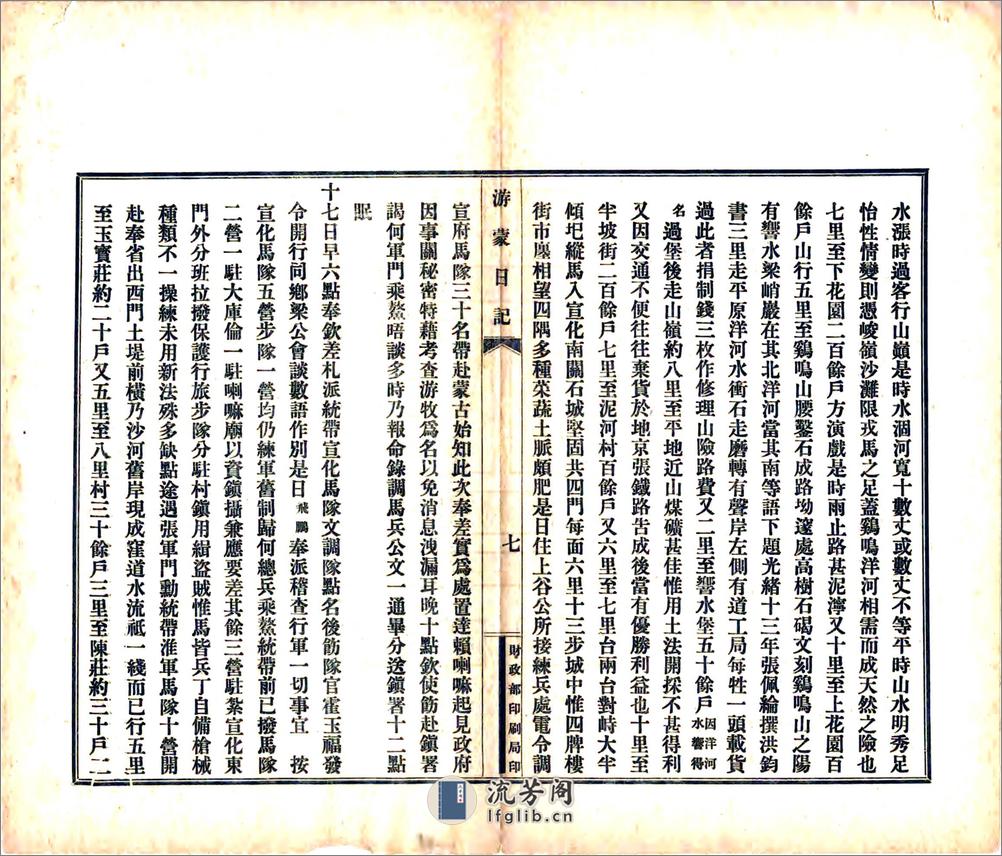 水漲時過客行山嶺是時水涸河寬十數丈或數丈不等平時山水明秀足
怡性情變則憑峻嶺沙灘限戎馬之足蓋鷄鳴洋河相需而成天然之險也
七里至下花園二百餘戶方演戲是時雨止路甚泥濘又十里至上花園百
餘戶山行五里至鷄鳴山腰鑿石成路坳邃處高樹石碣文刻鷄鳴山之陽
有響水梁峭巖在其北洋河當其南等語下題光緒十三年張佩綸撰洪鈞
書三里走平原洋河水衝石走磨轉有聲岸左側有道工局每牲一頭載貨
過此者捐制錢三枚作修理山險路費又二里至響水堡五十餘戶因洋河水響得
名過堡後走山嶺約八里至平地近山煤礦甚佳惟用土法開採不甚得利
又因交通不便往往棄貨於地京張鐵路告成後當有優勝利益也十里至
半坡街二百餘戶七里至泥河村百餘戶又六里至七里台兩台對峙大半
傾圮縱馬入宣化南關石城堅固共四門每面六里十三步城中惟四牌樓
街市廛相望四隅多種菜蔬土脈頗肥是日住上谷公所接練兵處電令調
游蒙日記
七
財政部印刷局印
宣府馬隊三十名帶赴蒙古始知此次奉差實爲處置達賴喇嘛起見政府
因事關秘密特藉考查游牧爲名以免消息洩漏耳晚十點欽使飭赴鎮署
謁何軍門乘鰲晤談多時乃報命錄調馬兵公文一通畢分送鎮署十二點
眠
十七日早六點奉欽差札派統帶宣化馬隊文調隊點名後飭隊官霍玉福發
令開行同鄉梁公會談數語作別是日飛鵬奉派稽查行軍一切事宜　按
宣化馬隊五營步隊一營均仍練軍舊制歸何總兵乘鰲統帶前已撥馬隊
二營一駐大庫倫一駐喇嘛廟以資鎮攝兼應要差其餘三營駐紮宣化東
門外分班拉撥保護行旅步隊分駐村鎮用緝盜賊惟馬皆兵丁自備槍械
種類不一操練未用新法殊多缺點途遇張軍門勳統帶淮軍馬隊十營開
赴奉省出西門土堤前橫乃沙河舊岸現成窪道水流祗一綫而已行五里
至玉寳莊約二十戶又五里至八里村三十餘戶三里至陳莊約三十戶二
流芳阁
lfglib.cn